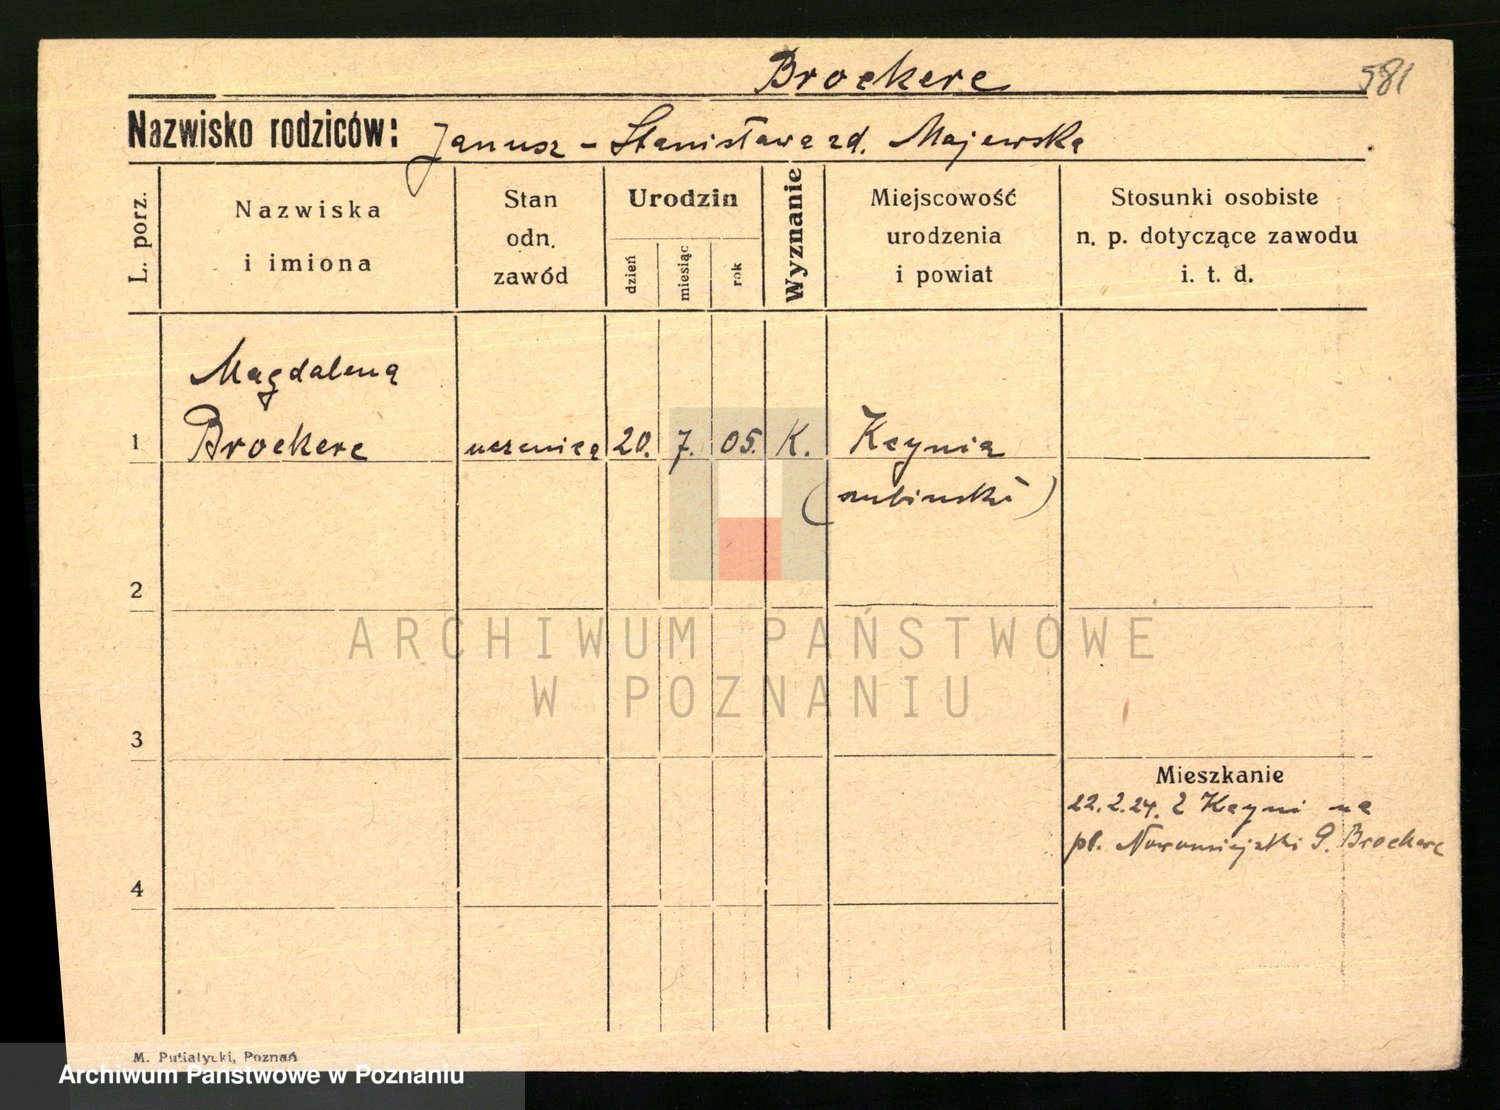 Brockere 581
Nazwisko rodziców: Janusz - Stanisława zd. Majewska
L. porz.
Nazwiska
i imiona
Stan
odn.
zawód
Urodzin
dzień
miesiąc
rok
Wyznanie
Miejscowość
urodzenia
i powiat
Stosunki osobiste
n. p. dotyczące zawodu
i. t. d.
Magdalena
1 Brockere uczenica 20. 7. 05. K. Kcynia
(szubiński)
2
ARCHIWUM PAŃSTWOWE
W POZNANIU
3
Mieszkanie
22.2.24. z Kcyni na
pl. Nowomiejski 9. Brockere
4
M. Putiatycki, Poznań
Archiwum Państwowe w Poznaniu